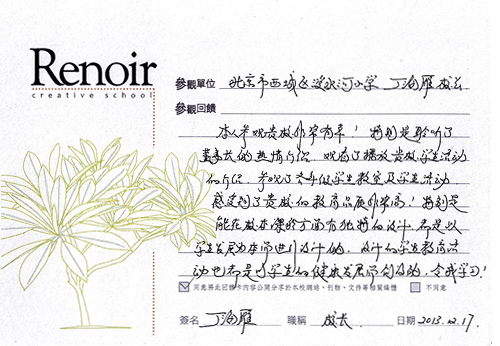 Renoir
creative school
參觀單位 北京市西城区 小学 丁 雁 校长
參觀回饋
本人参观贵校非常有幸！特别是聆听了
董事长的热情介绍 观看了播放贵校学生活动
的介绍，参观了各年级学生教室及学生活动
感受到了贵校的教育品质非常高！特别是
能在校本课程方面有独特的设计 都是以
学生发展为本而进行设计的，设计的学生教育活
动也都是对学生的健康发展而 的，令我学习！
同意將此回饋卡內容公開分享於本校網站、刊物、文件等相關媒體 不同意
簽名 丁 雁 職稱 校长 日期 2013.12.17.